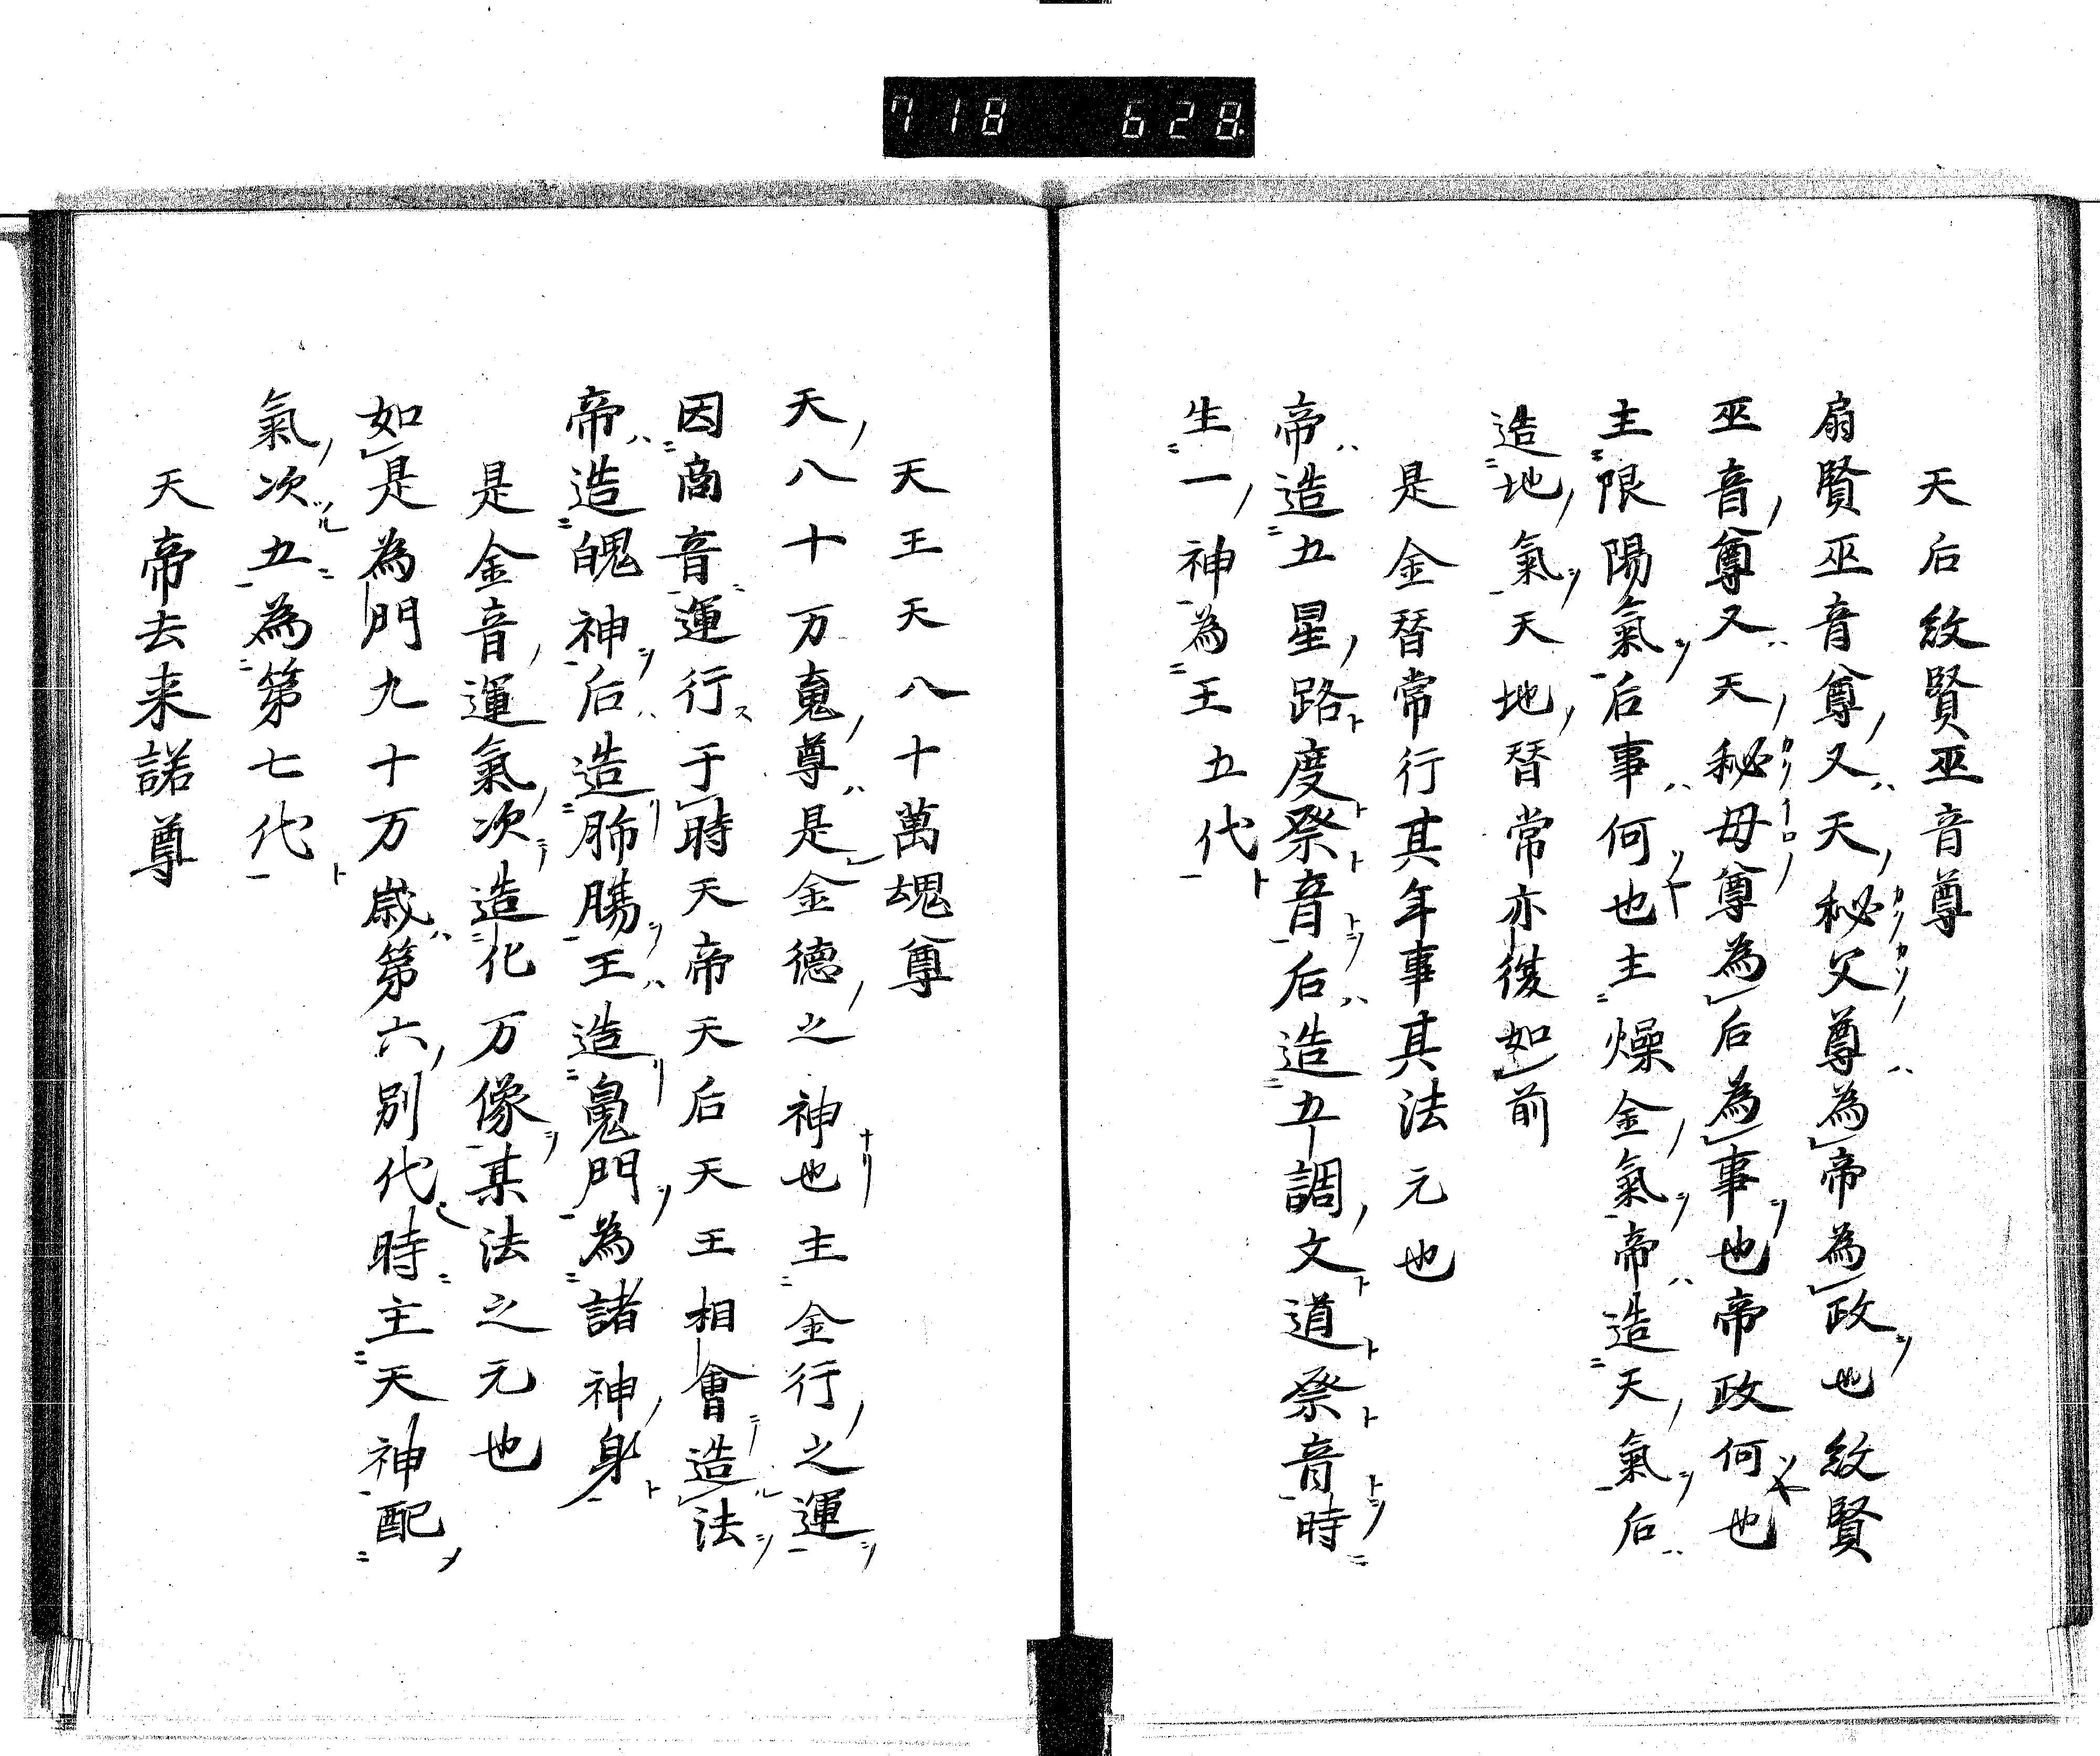 718 628
天后紋賢巫音尊
扇賢巫音尊又天秘父尊為帝為政也紋賢
巫音尊又天秘母尊為后為事也帝政何也
主限陽氣后事何也主燥金氣帝造天氣后
造地氣天地替常亦復如前
是金替常行其年事其法元也
帝造五星路度祭音后造五調文道祭音時
生一神為王五代
天王天八十萬魂尊
天八十万䰟尊是金德之神也主金行之運
因商音運行于時天帝天后天王相會造法
帝造魄神后造肺腸王造鬼門為諸神身
是金音運氣次造化万像某法之元也
如是為門九十万歳第六別代時主天神配
氣次五為第七代
天帝去来諾尊